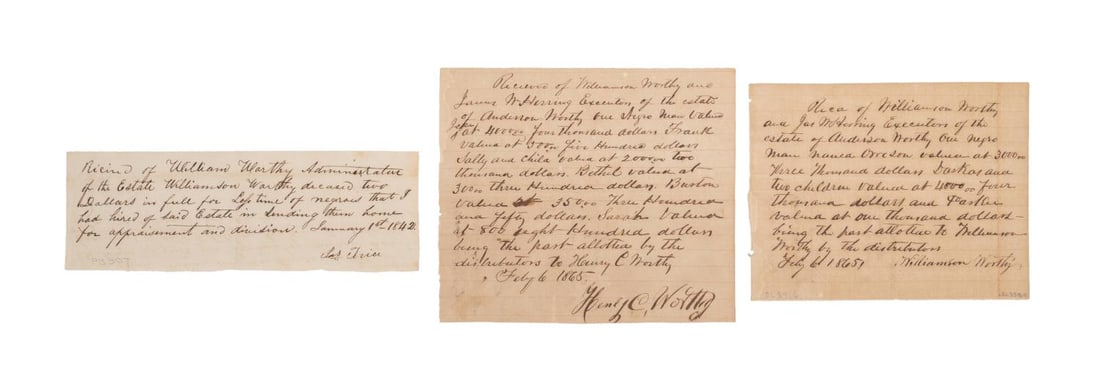 Recived of William Worthy Administrator
of the Estate Williamson Worthy deceased two
Dollars in full for Lostime of negroes that I
had hired of said Estate in sending them home
for appraisement and division. January 1st 1842
Jas Trice
PS 307
Recieved of Williamson Worthy and
James W Herring Executors of the estate
of Anderson Worthy One Negro Man Valued
at 4000.00 four thousand dollars Frank
Valued at 500.00 five Hundred dollars
Sally and Child Value at 2000.00 two
thousand dollars. Bethel valued at
300.00 three Hundred dollars. Burton
Valued at 350.00 Three Hundred
and fifty dollars. Sarah Valued
at 800 eight Hundred dollars
being the part allotted by the
distributors to Henry C Worthy
Feby 6 1865.
Henry C, Worthy
Recd of Williamson Worthy
and Jas W Herring Executors of the
estate of Anderson Worthy One negro
Man named valued at 3000.00
Three Thousand dollars Daskas and
two children valued at 4000.00 Four
thousand dollars and
Valued at one thousand dollars
being the part allotted to Williamson
Worthy by the distributors
Feby 6 1865, Williamson Worthy.